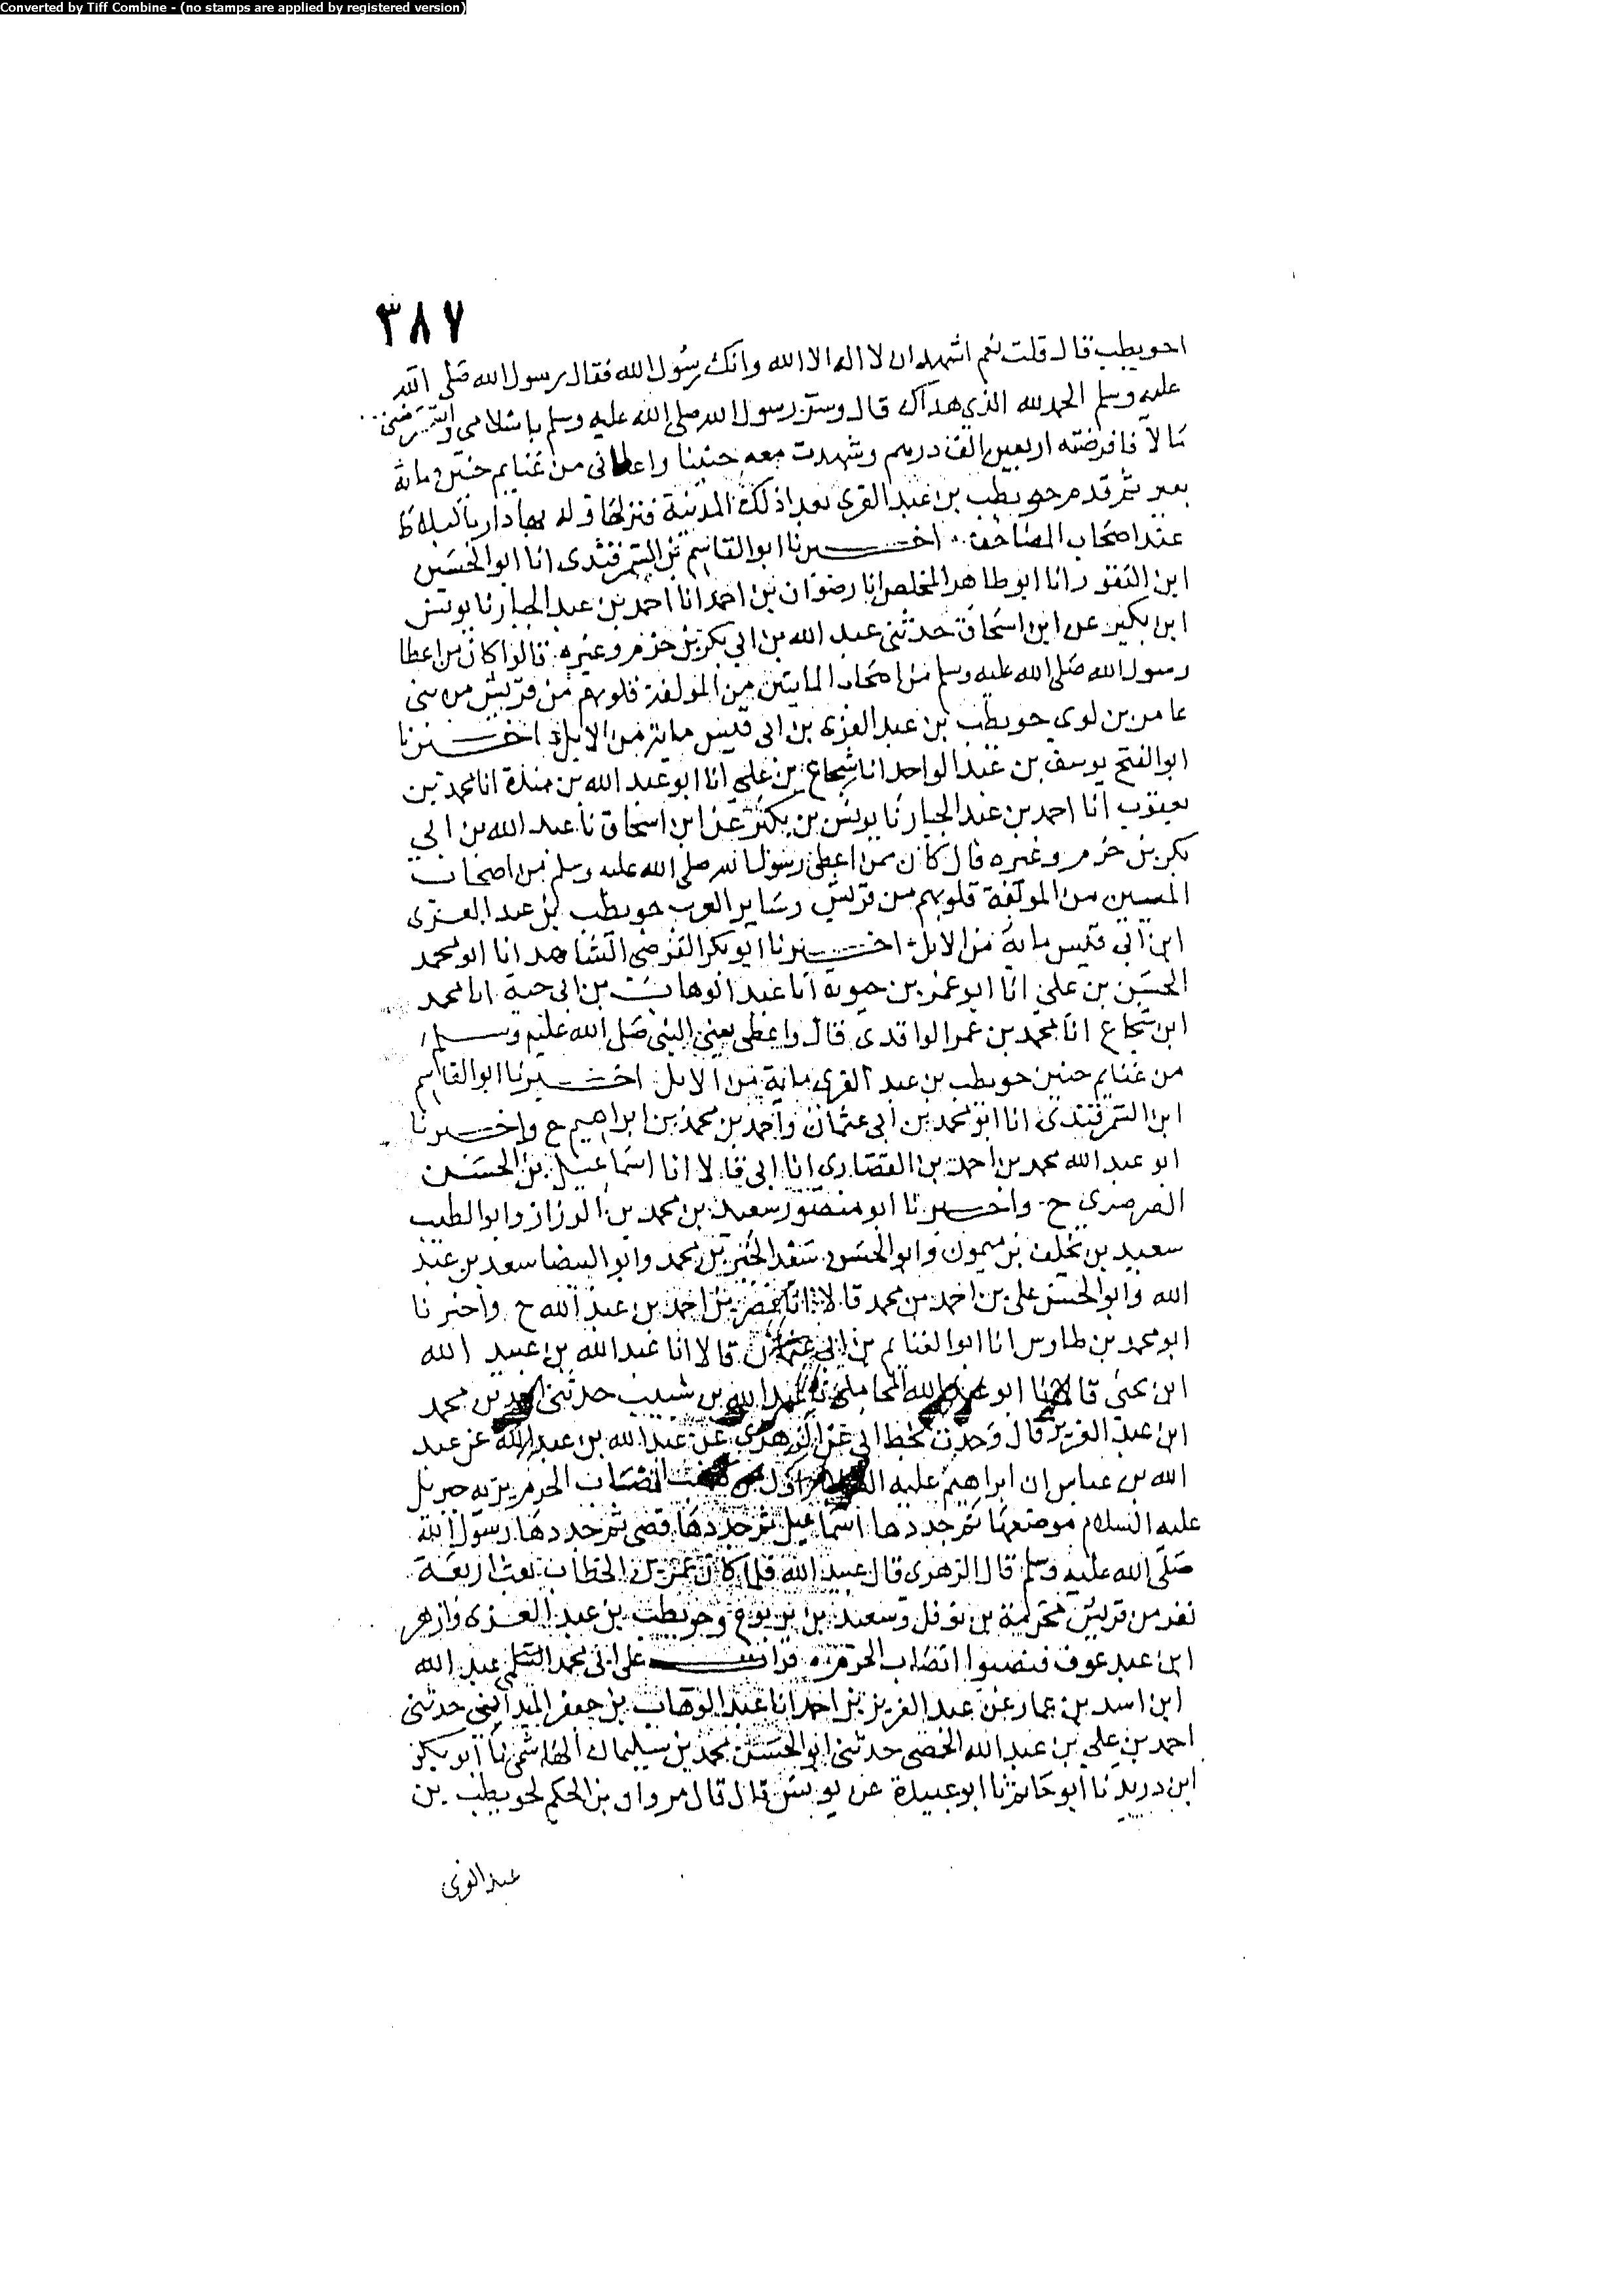 Converted by Tiff Combine - (no stamps are applied by registered version)
٣٨٧
احويطب قال قلت نعم اشهد ان لا اله الا الله وانك رسول الله فقال رسول الله صلى الله
عليه وسلم الحمد لله الذي هداك قال وسر رسول الله صلى الله عليه وسلم باسلامي واستقرضني
مالا فاقرضته اربعين الف درهم وشهدت معه حنينا واعطاني من غنايم حنين ماية
بعير ثم قدم حويطب بن عبد العزى بعد ذلك المدينة فنزلها وله بها دار بالبلاط
عند اصحاب المصاحف اخبرنا ابو القاسم بن السمرقندي انا ابو الحسين
ابن النقور انا ابو طاهر المخلص انا رضوان بن احمد انا احمد بن عبد الجبار نا يونس
ابن بكير عن ابن اسحاق حدثني عبد الله بن ابي بكر بن حزم وغيره قالوا كان من اعطا
رسول الله صلى الله عليه وسلم من اصحاب المايتين من المولفة قلوبهم من قريش من بني
عامر بن لوي حويطب بن عبد العزى بن ابي قيس ماية من الابل اخبرنا
ابو الفتح يوسف بن عبد الواحد انا شجاع بن علي انا ابو عبد الله بن مندة انا محمد بن
يعقوب انا احمد بن عبد الجبار نا يونس بن بكير عن ابن اسحاق نا عبد الله بن ابي
بكر بن حزم وغيره قال كان ممن اعطى رسول الله صلى الله عليه وسلم من اصحاب
المييين من المولفة قلوبهم من قريش وساير العرب حويطب بن عبد العزى
ابن ابي قيس ماية من الابل اخبرنا ابو بكر الفرضي الشاهد انا ابو محمد
الحسن بن علي انا ابو عمر بن حيوية انا عبد الوهاب بن ابي حية انا محمد
ابن شجاع انا محمد بن عمر الواقدي قال واعطى يعني النبي صلى الله عليه وسلم
من غنايم حنين حويطب بن عبد العزى ماية من الابل اخبرنا ابو القاسم
ابن السمرقندي انا ابو محمد بن ابي عثمان واحمد بن محمد بن ابراهيم ح واخبرنا
ابو عبد الله محمد بن احمد بن القصاري انا ابي قالا انا اسماعيل بن الحسن
الصرصري ح واخبرنا ابو منصور سعيد بن محمد بن الرزاز وابو الطيب
سعيد بن يخلف بن ميمون وابو الحسن سعد الخير بن محمد وابو البيضا سعد بن عبد
الله وابو الحسن علي بن احمد بن محمد قالا انا نصر بن احمد بن عبد الله ح واخبرنا
ابو محمد بن طاوس انا ابو الغنايم بن ابي عثمان قالا انا عبد الله بن عبيد الله
ابن يحيى قالا نا ابو عبد الله المحاملي نا عبد الله بن شبيب حدثني احمد بن محمد
ابن عبد العزيز قال وجدت بخط ابي عن الزهري عن عبيد الله بن عبد الله عن عبد
الله بن عباس ان ابراهيم عليه السلام اول من نصب انصاب الحرم يريه جبريل
عليه السلام موضعها ثم جددها اسماعيل ثم جددها قصي ثم جددها رسول الله
صلى الله عليه وسلم قال الزهري قال عبيد الله فلما كان عمر بن الخطاب بعث اربعة
نفر من قريش مخرمة بن نوفل وسعيد بن يربوع وحويطب بن عبد العزى وازهر
ابن عبد عوف فنصبوا انصاب الحرم قرات على ابي محمد السلمي عبد الله
ابن اسد بن عمار عن عبد العزيز بن احمد انا عبد الوهاب بن جعفر الميداني حدثني
احمد بن علي بن عبد الله الحضي حدثني ابو الحسين محمد بن سليمان الهاشمي نا ابو بكر
ابن دريد نا ابو حاتم نا ابو عبيدة عن يونس قال قال مروان بن الحكم لحويطب بن
عبد العزى